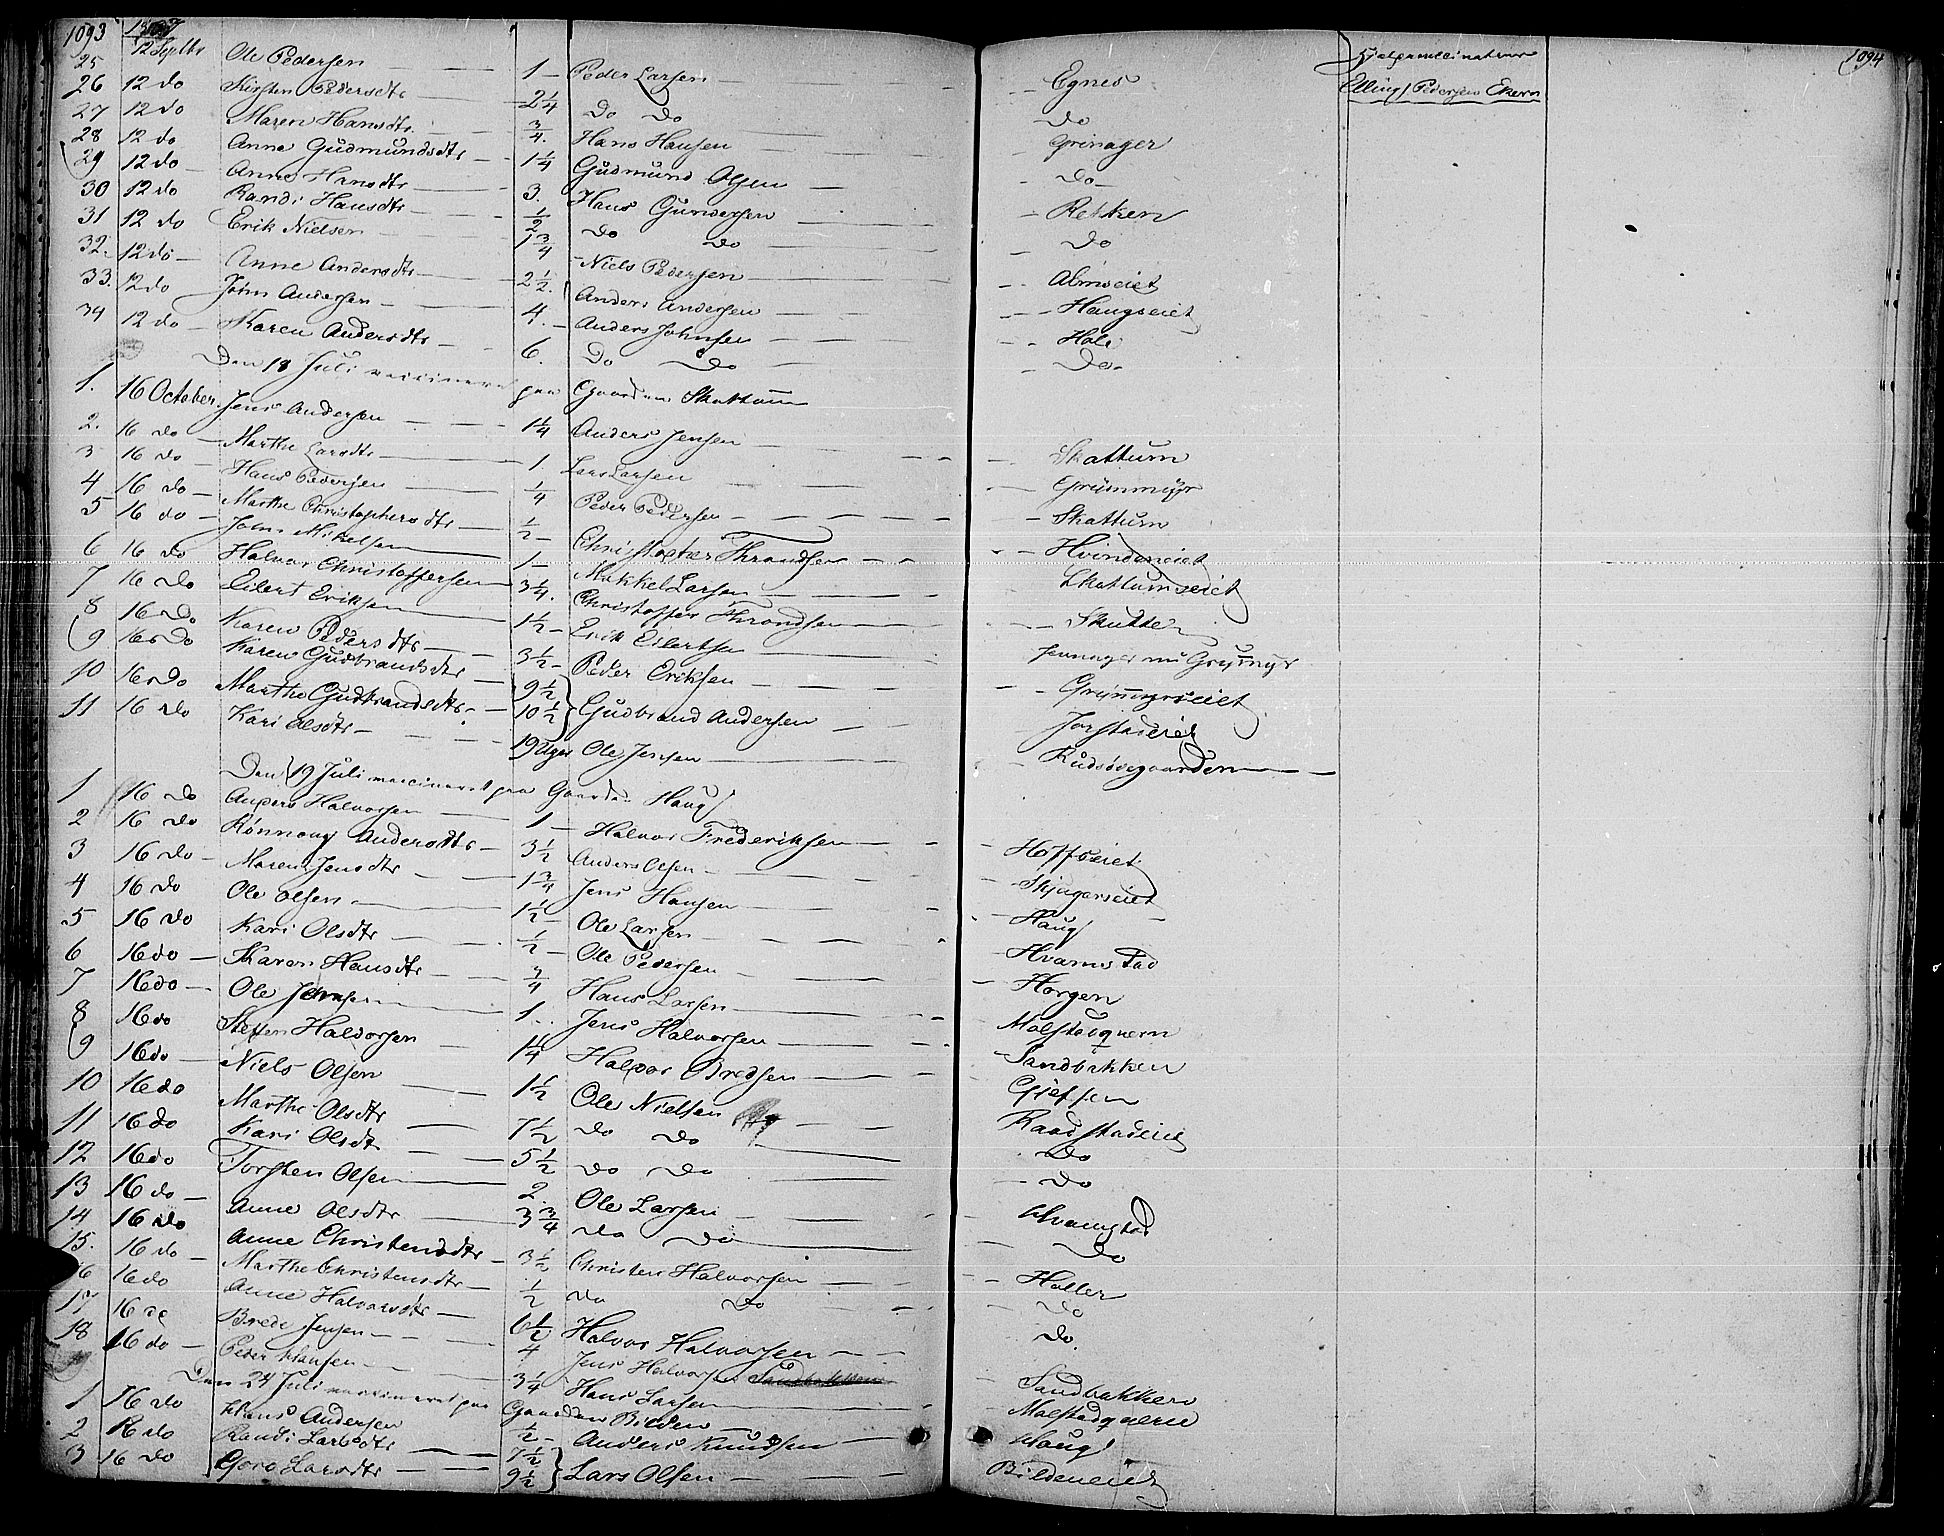 1093 1837 1094
Hjelpevaccinateur
Elling Pedersen Ekern
25 12 Septbr Ole Pedersen 1 Peder Larsen Egnes
26 12 do Kirsten Pedersdtr 2 1/4 Do Do Do
27 12 do Maren Hansdtr 3/4 Hans Hansen Grinager
28 12 do Anne Gudmundsdtr 1 1/4 Gudmund Olsen Do
29 12 do Anne Hansdtr 3 Hans Gundersen Rekken
30 12 do Randi Hansdtr 1/2 Do Do Do
31 12 do Erik Nielsen 1 3/4 Niels Pedersen Almseiet
32 12 do Anne Andersdtr 2 1/2 Anders Andersen Haugseiet
33 12 do John Andersen 4 Anders Johnsen Hole
34 12 do Karen Andersdtr 6 Do Do Do
Den 18 Juli vaccineret paa Gaarden Skattum
1 16 October Jens Andersen 1 1/4 Anders Jensen Skattum
2 16 do Marthe Larsdtr 1 Lars Larsen Grümmyr
3 16 do Hans Pedersen 1/4 Peder Pedersen Skattum
4 16 do Marthe Christophersdtr 1/2 Christopher Throndsen Hvindeneiet
5 16 do John Mikelsen 1 Mikkel Larsen Skattumseiet
6 16 do Halvor Christoffersen 3/4 Christoffer Throndsen
7 16 do Eilert Eriksen 1 1/2 Erik Eilertsen Grymyr
8 16 do Karen Pedersdtr 3 1/2 Peder Eriksen
9 16 do Karen Gudbrandsdtr 9 1/2 Gudbrand Andersen
10 16 do Marthe Gudbrandsdtr 10 1/2
11 16 do Kari Olsdtr 19 Uger Ole Jensen
Den 19 Juli vaccineret paa Gaarden Haug
1 16 do Anders Halvorsen 1 Halvor Frederiksen Hoffseiet
2 16 do Rønnoug Andersdtr 3 1/2 Anders Olsen Skjagerseiet
3 16 do Maren Jensdtr 1 3/4 Jens Hansen Haug
4 16 do Ole Olsen 1 1/2 Ole Larsen Hvamstad
5 16 do Kari Olsdtr 1/2 Ole Pedersen Horgen
6 16 do Karen Hansdtr 3/4 Hans Larsen Molstadqvern
7 16 do Ole Jensen 1 Jens Halvorsen Sandbakken
8 16 do Steffen Halvorsen 1 1/4 Halvor Bredsen
9 16 do Niels Olsen 1 1/2 Ole Nielsen Raadstadeiet
10 16 do Marthe Olsdtr 7 1/2 Do Do Do
11 16 do Kari Olsdtr 5 1/2 Do Do Do
12 16 do Torsten Olsen 2 Ole Larsen Hvamstad
13 16 do Anne Olsdtr 3 3/4 Do Do Do
14 16 do Anne Christensdtr 3 1/2 Christen Halvorsen Haller
15 16 do Marthe Christensdtr 1/2 Do Do Do
16 16 do Anne Halvorsdtr 6 1/2 Halvor Halvorsen Do
17 16 do Brede Jensen 4 Jens Halvorsen Sandbakken Sandbakken
18 16 do Peder Hansen 3/4 Hans Larsen Molstadqvern
Den 24 Juli vaccineret paa Gaarden Bilden
1 16 do Hans Andersen 1/2 Anders Knudsen Haug
2 16 do Randi Larsdtr 7 1/2 Lars Olsen Bildeneiet
3 16 do Goro Larsdtr 9 1/2